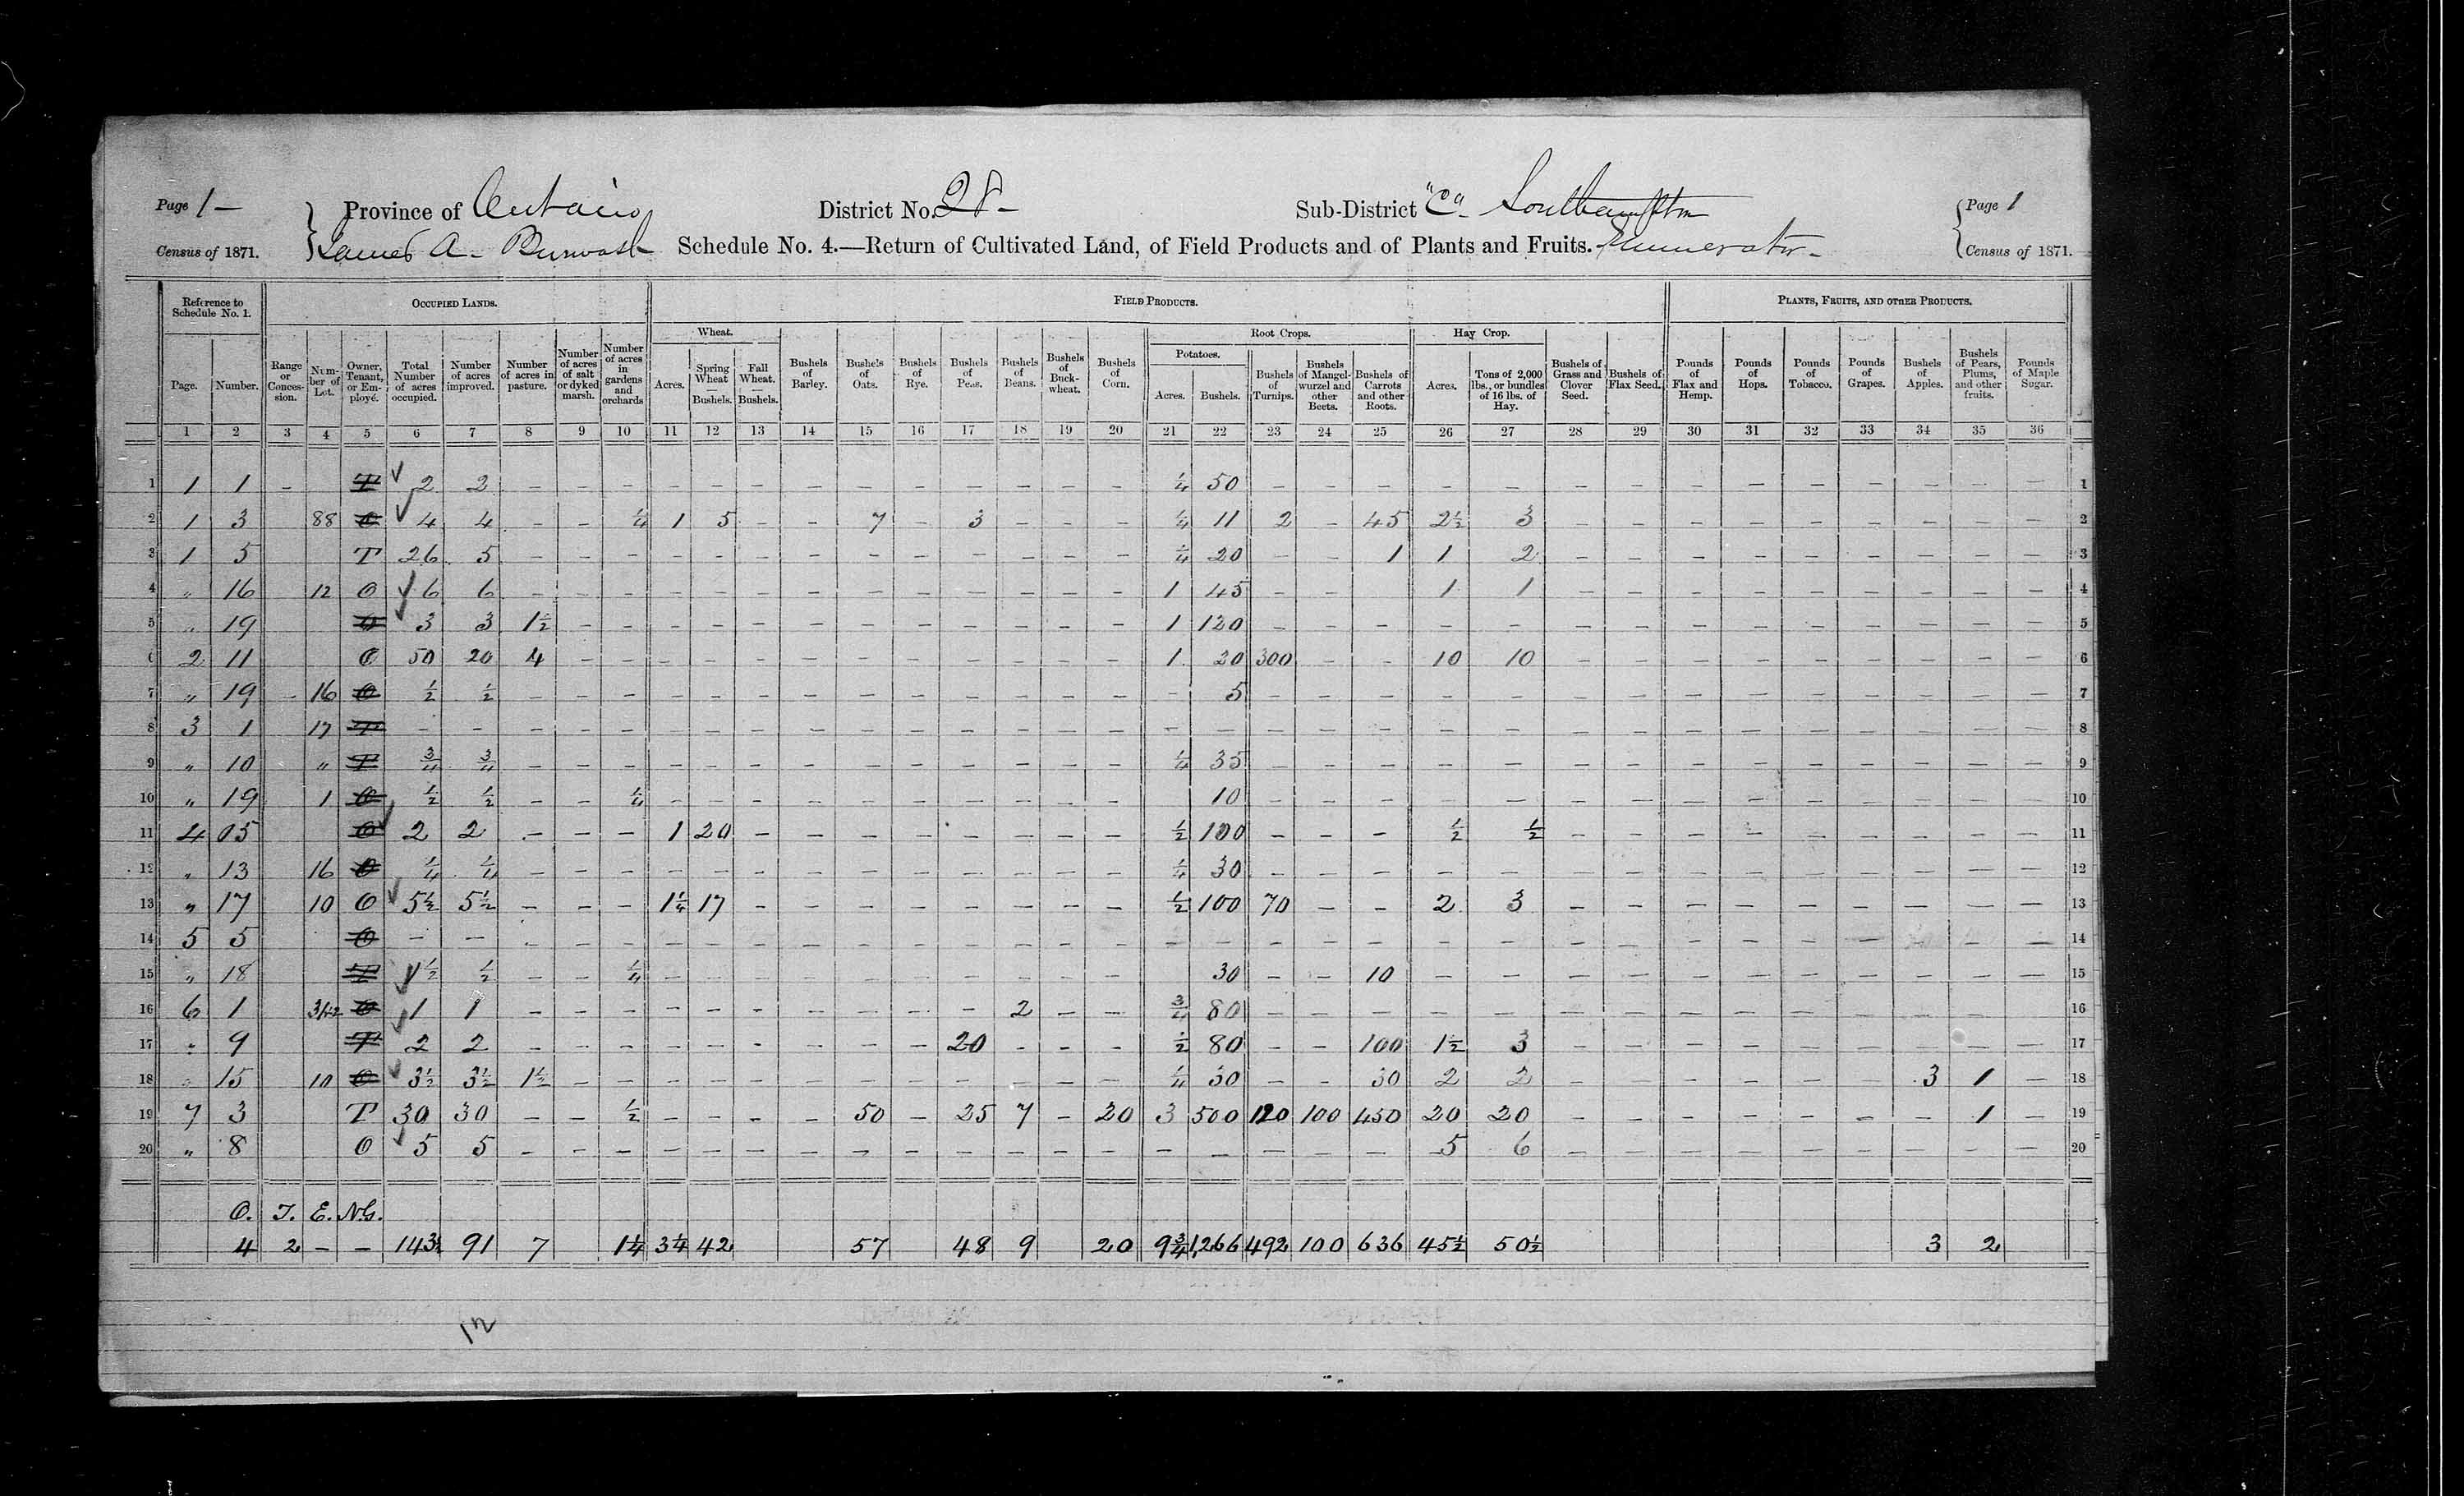 Page 1 — Province of Ontario District No. 28 - Sub-District "C" Southampton Page 1
Census of 1871. James A. Burwash Schedule No. 4.—Return of Cultivated Land, of Field Products and of Plants and Fruits. Enumerator - Census of 1871.
Reference to Schedule No. 1. OCCUPIED LANDS. FIELD PRODUCTS. PLANTS, FRUITS, AND OTHER PRODUCTS.
Wheat. Root Crops. Hay Crop.
Potatoes.
Page. Number. Range or Conces-sion. Num-ber of Lot. Owner, Tenant, or Em-ployé. Total Number of acres occupied. Number of acres improved. Number of acres in pasture. Number of acres of salt or dyked marsh. Number of acres in gardens and orchards Acres. Spring Wheat — Bushels. Fall Wheat. — Bushels. Bushels of Barley. Bushels of Oats. Bushels of Rye. Bushels of Peas. Bushels of Beans. Bushels of Buck-wheat. Bushels of Corn. Acres. Bushels. Bushels of Turnips. Bushels of Mangel-wurzel and other Beets. Bushels of Carrots and other Roots. Acres. Tons of 2,000 lbs., or bundles of 16 lbs. of Hay. Bushels of Grass and Clover Seed. Bushels of Flax Seed. Pounds of Flax and Hemp. Pounds of Hops. Pounds of Tobacco. Pounds of Grapes. Bushels of Apples. Bushels of Pears, Plums, and other fruits. Pounds of Maple Sugar.
1 2 3 4 5 6 7 8 9 10 11 12 13 14 15 16 17 18 19 20 21 22 23 24 25 26 27 28 29 30 31 32 33 34 35 36
1 1 1 - T 2 2 - - - - - - - - - - - - - ¼ 50 - - - - - - - - - - - - - - 1
2 1 3 88 O 4 4 - - ¼ 1 5 - - 7 - 3 - - - ¼ 11 2 - 45 2½ 3 - - - - - - - - - 2
3 1 5 T 26 5 - - - - - - - - - - - - - ¼ 20 - - 1 1 2 - - - - - - - - - 3
4 " 16 12 O 6 6 - - - - - - - - - - - - - 1 45 - - 1 1 - - - - - - - - - 4
5 " 19 3 3 1½ - - - - - - - - - - - - 1 120 - - - - - - - - - - - - - - 5
6 2 11 O 50 20 4 - - - - - - - - - - - - 1 20 300 - - 10 10 - - - - - - - - - 6
7 " 19 - 16 O ½ ½ - - - - - - - - - - - - - - 5 - - - - - - - - - - - - - - 7
8 3 1 17 T - - - - - - - - - - - - - - - - - - - - - - - - - - - - - - - 8
9 " 10 " T ¾ ¾ - - - - - - - - - - - - - ¼ 35 - - - - - - - - - - - - - - 9
10 " 19 1 O ½ ½ - - ¼ - - - - - - - - - - 10 - - - - - - - - - - - - - - 10
11 4 05 O 2 2 - - - 1 20 - - - - - - - - ½ 100 - - - ½ ½ - - - - - - - - - 11
12 " 13 16 O ¼ ¼ - - - - - - - - - - - - - ¼ 30 - - - - - - - - - - - - - - 12
13 " 17 10 O 5½ 5½ - - - 1¼ 17 - - - - - - - - ½ 100 70 - - 2 3 - - - - - - - - - 13
14 5 5 O - - - - - - - - - - - - - - - - - - - - - - - - - - - - - - - 14
15 " 18 T ½ ½ - - ¼ - - - - - - - - - - 30 - - 10 - - - - - - - - - - - 15
16 6 1 O 1 1 - - - - - - - - - - 2 - - ¾ 80 - - - - - - - - - - - - - - 16
17 " 9 T 2 2 - - - - - - - - - 20 - - - ½ 80 - - 100 1½ 3 - - - - - - - - - 17
18 " 15 10 O 3½ 3½ 1½ - - - - - - - - - - - - ¼ 30 - - 30 2 2 - - - - - - 3 1 - 18
19 7 3 T 30 30 - - ½ - - - - 50 - 25 7 - 20 3 500 120 100 450 20 20 - - - - - - - 1 - 19
20 " 8 O 5 5 - - - - - - - - - - - - - - - - - - 5 6 - - - - - - - - - 20
O. T. E. N.G.
4 2 - - 143½ 91 7 1¼ 3¼ 42 57 48 9 20 9¾ 1,266 492 100 636 45½ 50½ 3 2
12